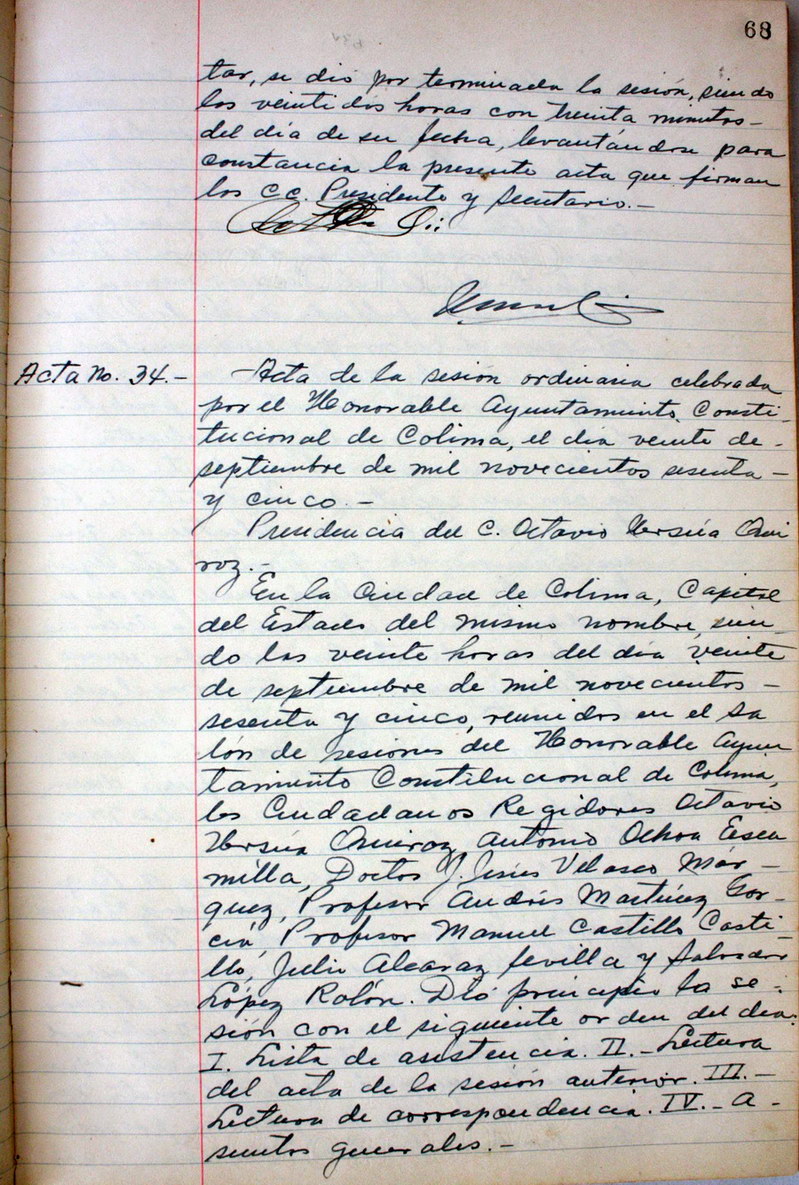 68
tar, se dió por terminada la sesión, siendo
las veintidos horas con treinta minutos-
del día de su fecha, levantándose para
constancia la presente acta que firman
los C.C. Presidente y Secretario.-
Acta No. 34.-
Acta de la sesión ordinaria celebrada
por el Honorable Ayuntamiento Consti-
tucional de Colima, el día veinte de-
septiembre de mil novecientos sesenta-
y cinco.-
Presidencia del C. Octavio Ursúa Qui
roz.-
En la Ciudad de Colima, Capital
del Estado del mismo nombre, sien-
do las veinte horas del día veinte
de septiembre de mil novecientos-
sesenta y cinco, reunidos en el sa
lón de sesiones del Honorable Ayun
tamiento Constitucional de Colima,
los Ciudadanos Regidores Octavio
Ursúa Quiroz, Antonio Ochoa Esca
milla, Doctor J. Jesús Velasco Már-
quez, Profesor Andrés Martínez Gar-
cía, Profesor Manuel Castillo Casti-
llo, Julio Alcaraz Sevilla y Salvador
López Rolón. Dió principio la se-
sión con el siguiente orden del día:
I. Lista de asistencia. II.- Lectura
del acta de la sesión anterior. III.-
Lectura de correspondencia. IV.- A-
suntos generales.-